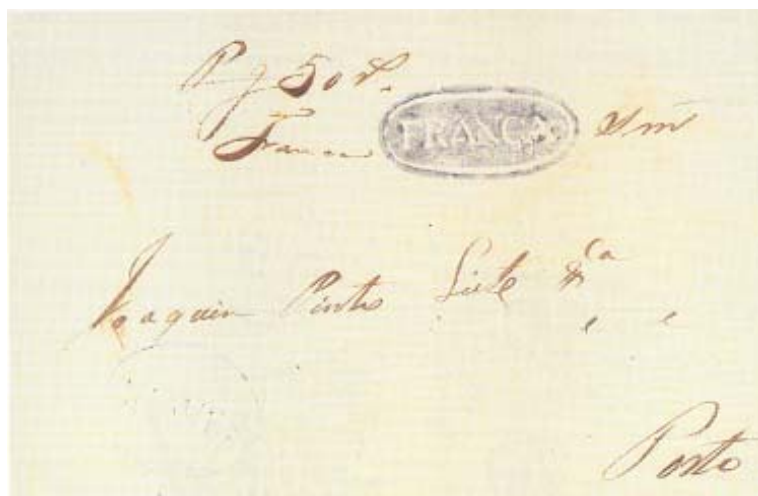 Pg 50 r.
Franca FRANCA
Joaquim Pinto Leite & Ca
Porto